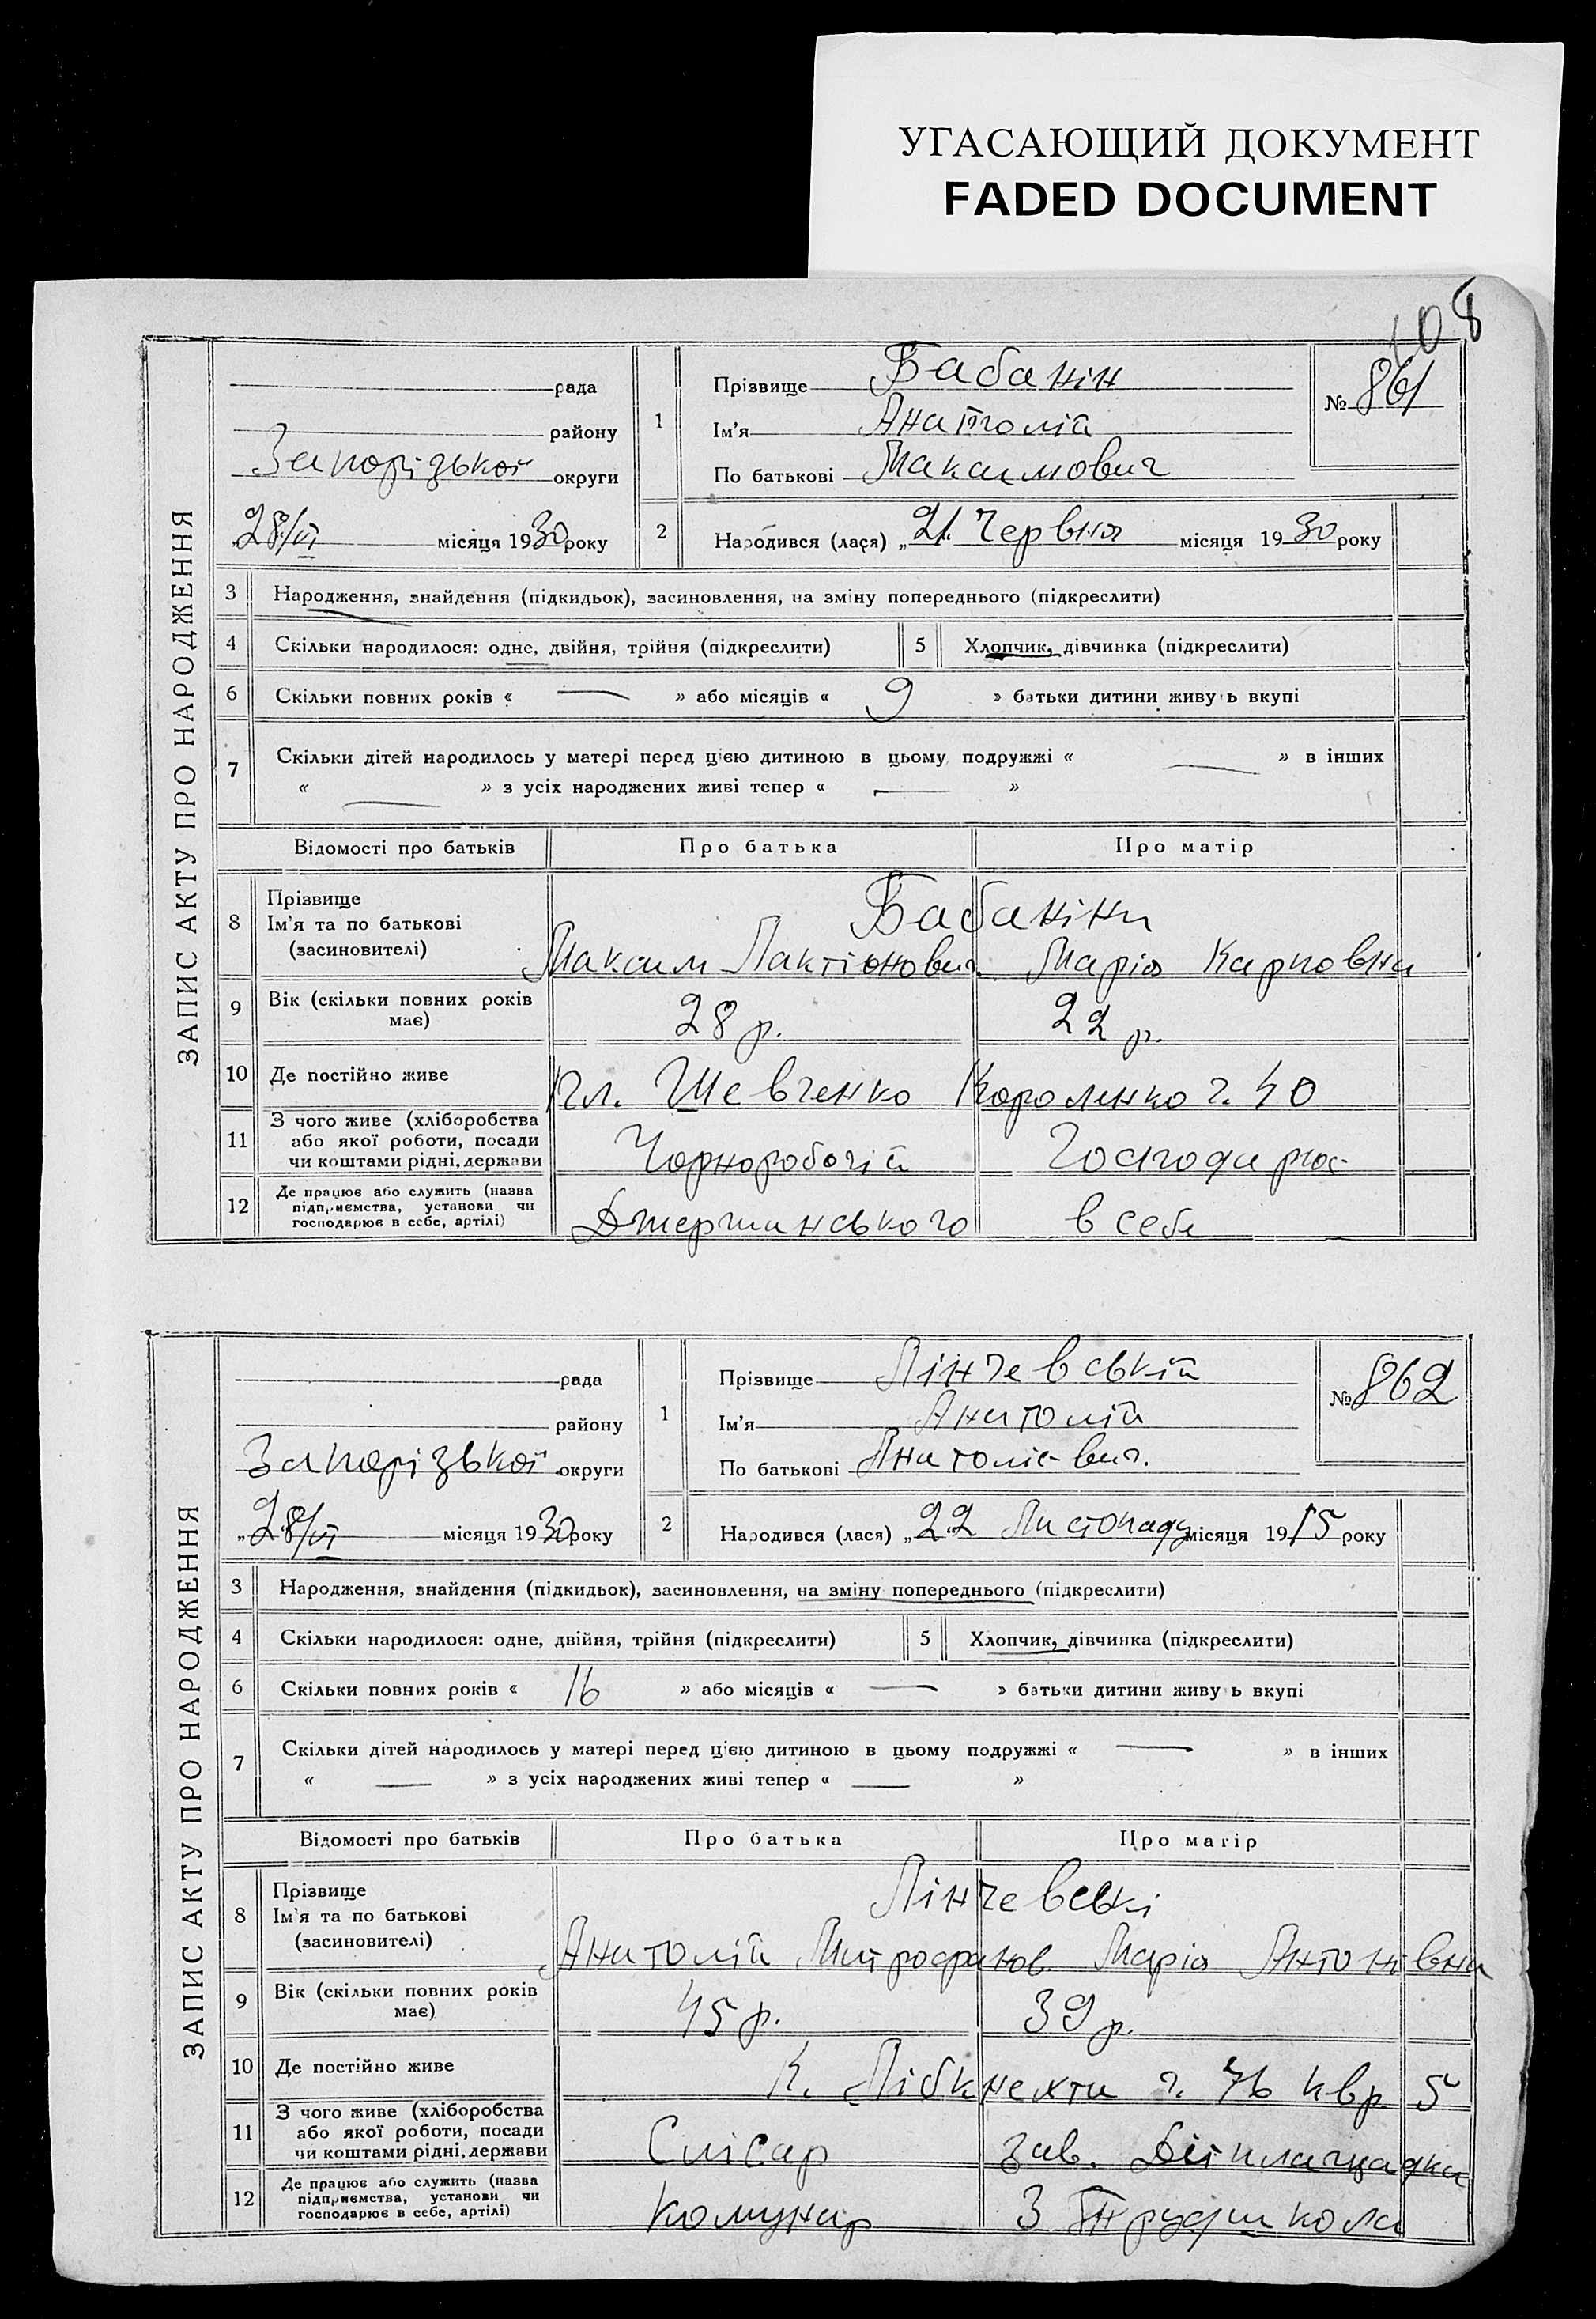 УГАСАЮЩИЙ ДОКУМЕНТ
FADED DOCUMENT
108
ЗАПИС АКТУ ПРО НАРОДЖЕННЯ
рада
району
Запорізької округи
„28/VI місяця 1930 року
1
Прізвище Бабанін
Ім'я Анатолій
По батькові Максимович
№ 861
2
Народився (лася) „21 Червня місяця 1930 року
3 Народження, знайдення (підкидьок), засиновлення, на зміну попереднього (підкреслити)
4 Скільки народилося: одне, двійня, трійня (підкреслити) 5 Хлопчик, дівчинка (підкреслити)
6 Скільки повних років « — » або місяців « 9 » батьки дитини живуть вкупі
7 Скільки дітей народилось у матері перед цією дитиною в цьому подружжі « — » в інших
« — » з усіх народжених живі тепер « — »
Відомості про батьків Про батька Про матір
8 Прізвище
Ім'я та по батькові
(засиновителі)
Бабаніни
Максим Лактіонович Марія Карповна
9 Вік (скільки повних років
має)
28 р. 22 р.
10 Де постійно живе
пл. Шевченко Короленко ч. 40
11 З чого живе (хліборобства
або якої роботи, посади
чи коштами рідні, держави
Чорноробочій Господарює
12 Де працює або служить (назва
підприємства, установи чи
господарює в себе, артілі)
Джержинського в себе
ЗАПИС АКТУ ПРО НАРОДЖЕННЯ
рада
району
Запорізької округи
„28/VI місяця 1930 року
1
Прізвище Лінчевській
Ім'я Анатолій
По батькові Анатоліевич.
№ 862
2
Народився (лася) „22 Листопаду місяця 1915 року
3 Народження, знайдення (підкидьок), засиновлення, на зміну попереднього (підкреслити)
4 Скільки народилося: одне, двійня, трійня (підкреслити) 5 Хлопчик, дівчинка (підкреслити)
6 Скільки повних років « 16 » або місяців « — » батьки дитини живуть вкупі
7 Скільки дітей народилось у матері перед цією дитиною в цьому подружжі « — » в інших
« — » з усіх народжених живі тепер « — »
Відомості про батьків Про батька Про матір
8 Прізвище
Ім'я та по батькові
(засиновителі)
Лінчевські
Анатолій Митрофанов. Марія Антонівна
9 Вік (скільки повних років
має)
45 р. 39 р.
10 Де постійно живе
К. Лібкнехта ч. 76 квр 5
11 З чого живе (хліборобства
або якої роботи, посади
чи коштами рідні, держави
Слісар зав. Дітплощадки
12 Де працює або служить (назва
підприємства, установи чи
господарює в себе, артілі)
Комунар 3